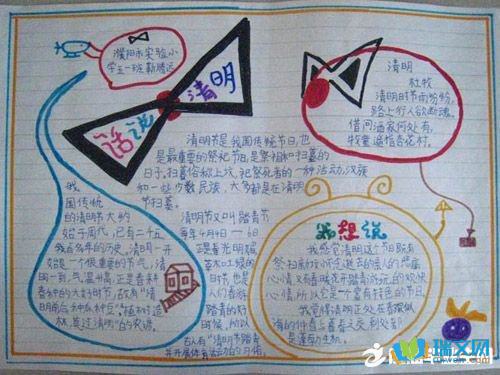 濮阳市实验小
学五一班
话说
清明
清明节是我国传统节日,也
是最重要的祭祀节日,是祭祖和扫墓的
日子。扫墓俗称上坟,祀祭死者的一种活动。汉族
和一些少数民族,大多都是在清明
节扫墓。
我
国传统
的清明节大约
始于周代,已有二千五
百多年的历史。清明一开
始是一个很重要的节气,清
明一到,气温升高,正是春耕
春种的大好时节,故有"清
明前后,种瓜种豆"。"植树造
林,莫过清明"的农谚。
清明节又叫踏青节
每年4月4日——6日
正是春光明媚
草木吐绿的
时节,也是
人们春游
踏青的好
时候,所以
古人有"清明节踏青
并开展体育活动的习俗。
清明
杜牧
清明时节雨纷纷,
路上行人欲断魂。
借问酒家何处有,
牧童遥指杏花村。
我想说
我感觉清明这个节日既有
祭扫新坟怀念逝去的亲人的
心情,又有春暖花开踏青游玩的欢快
心情,所以它是一个富有特色的节日。
我觉得清明正处在春
清的仲春与暮春之交,
是春
瑞文网